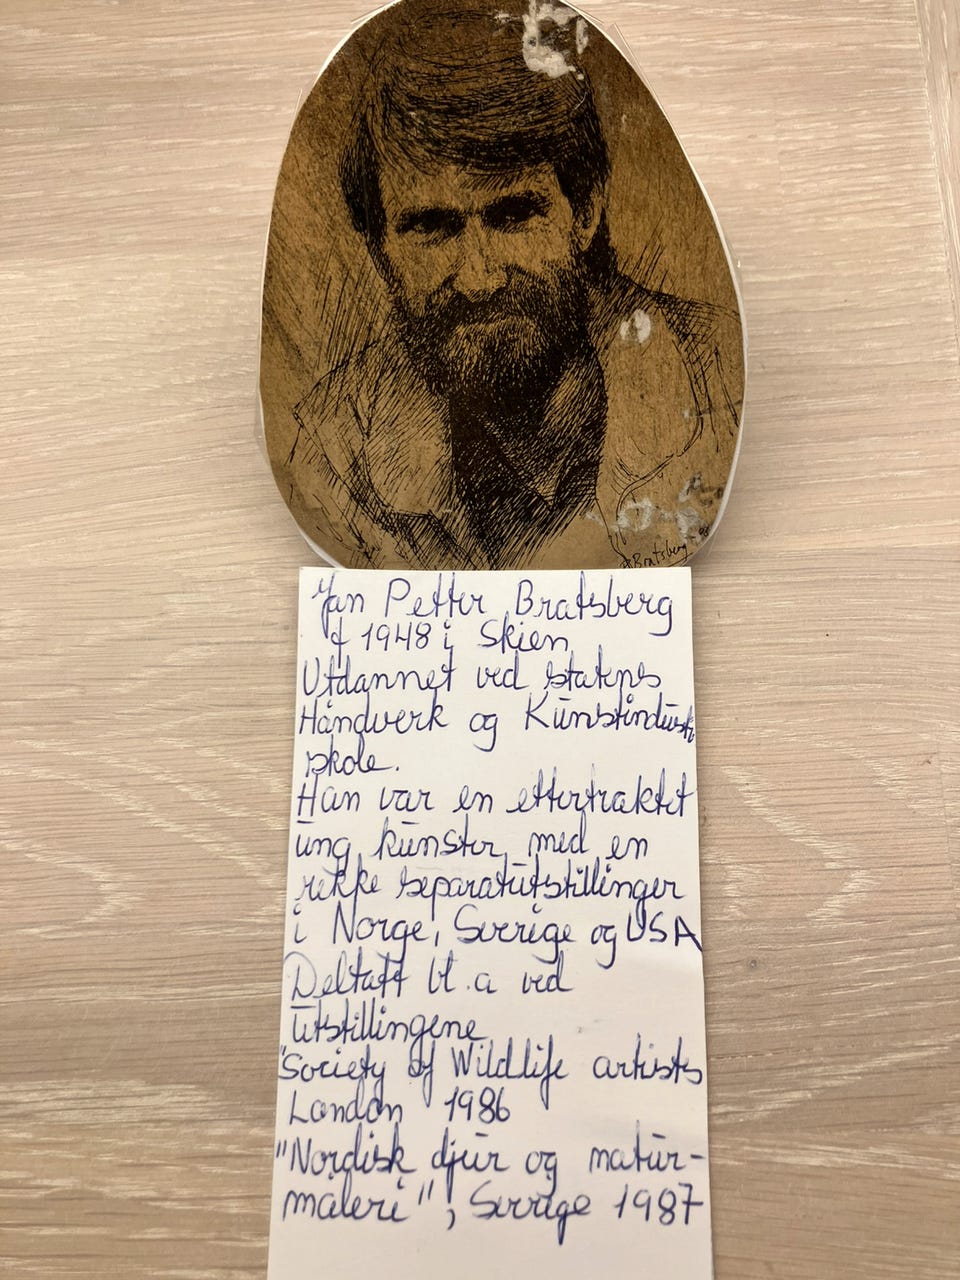 Bratsberg -86
Jan Petter Bratsberg
f 1948 i Skien
Utdannet ved statens
Håndverk og Kunstindustri
skole.
Han var en ettertraktet
ung kunster med en
rekke separatutstillinger
i Norge, Sverige og USA
Deltatt bl.a ved
utstillingene
"Society of Wildlife artists
London 1986
"Nordisk djur og natur-
måleri", Sverige 1987